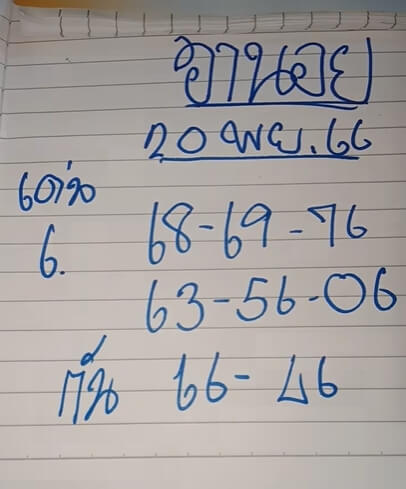 ฮานอย
20 พย.66
เด่น 68-69-76
6. 63-56-06
กัน 66-46